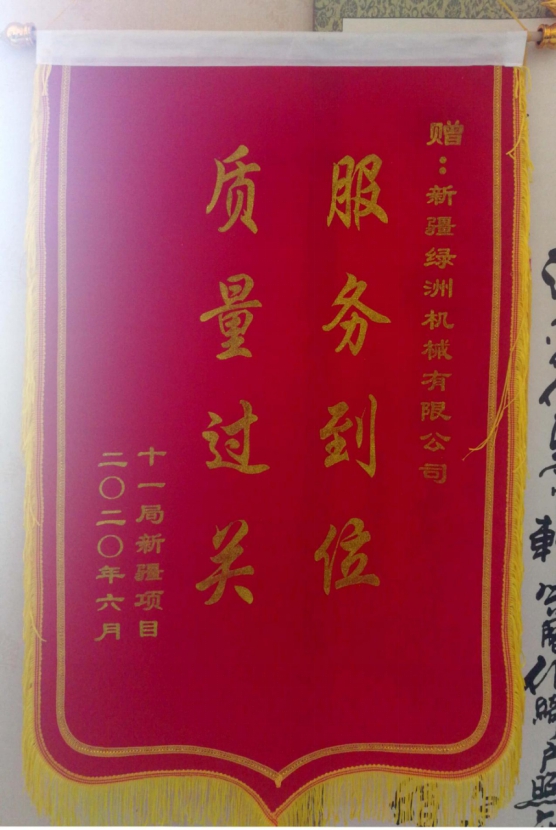 赠：新疆绿洲机械有限公司
服务到位
质量过关
十一局新疆项目
二〇二〇年六月